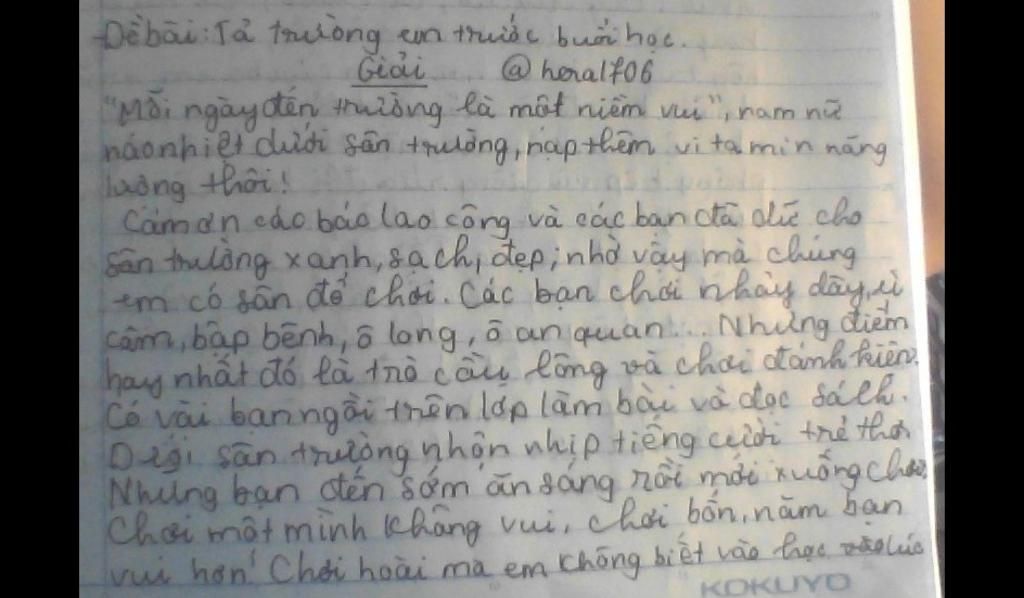 Đề bài: Tả trường em trước buổi học.
Giải @heral706
"Mỗi ngày đến trường là một niềm vui", nam nữ
náo nhiệt dưới sân trường, nạp thêm vitamin năng
lượng thôi!
Cảm ơn các bác lao công và các bạn đã dữ cho
sân trường xanh, sạch, đẹp; nhờ vậy mà chúng
em có sân để chơi. Các bạn chơi nhảy dây, ù
câm, bập bênh, ô long, ô an quan... Nhưng điểm
hay nhất đó là trò cầu lông và chơi đánh kiện.
Có vài bạn ngồi trên lớp làm bài và đọc sách.
Dưới sân trường nhộn nhịp tiếng cười trẻ thơ.
Những bạn đến sớm ăn sáng rồi mới xuống chơi.
Chơi một mình không vui, chơi bốn, năm bạn
vui hơn! Chơi hoài mà em không biết vào học lúc
KOKUYO